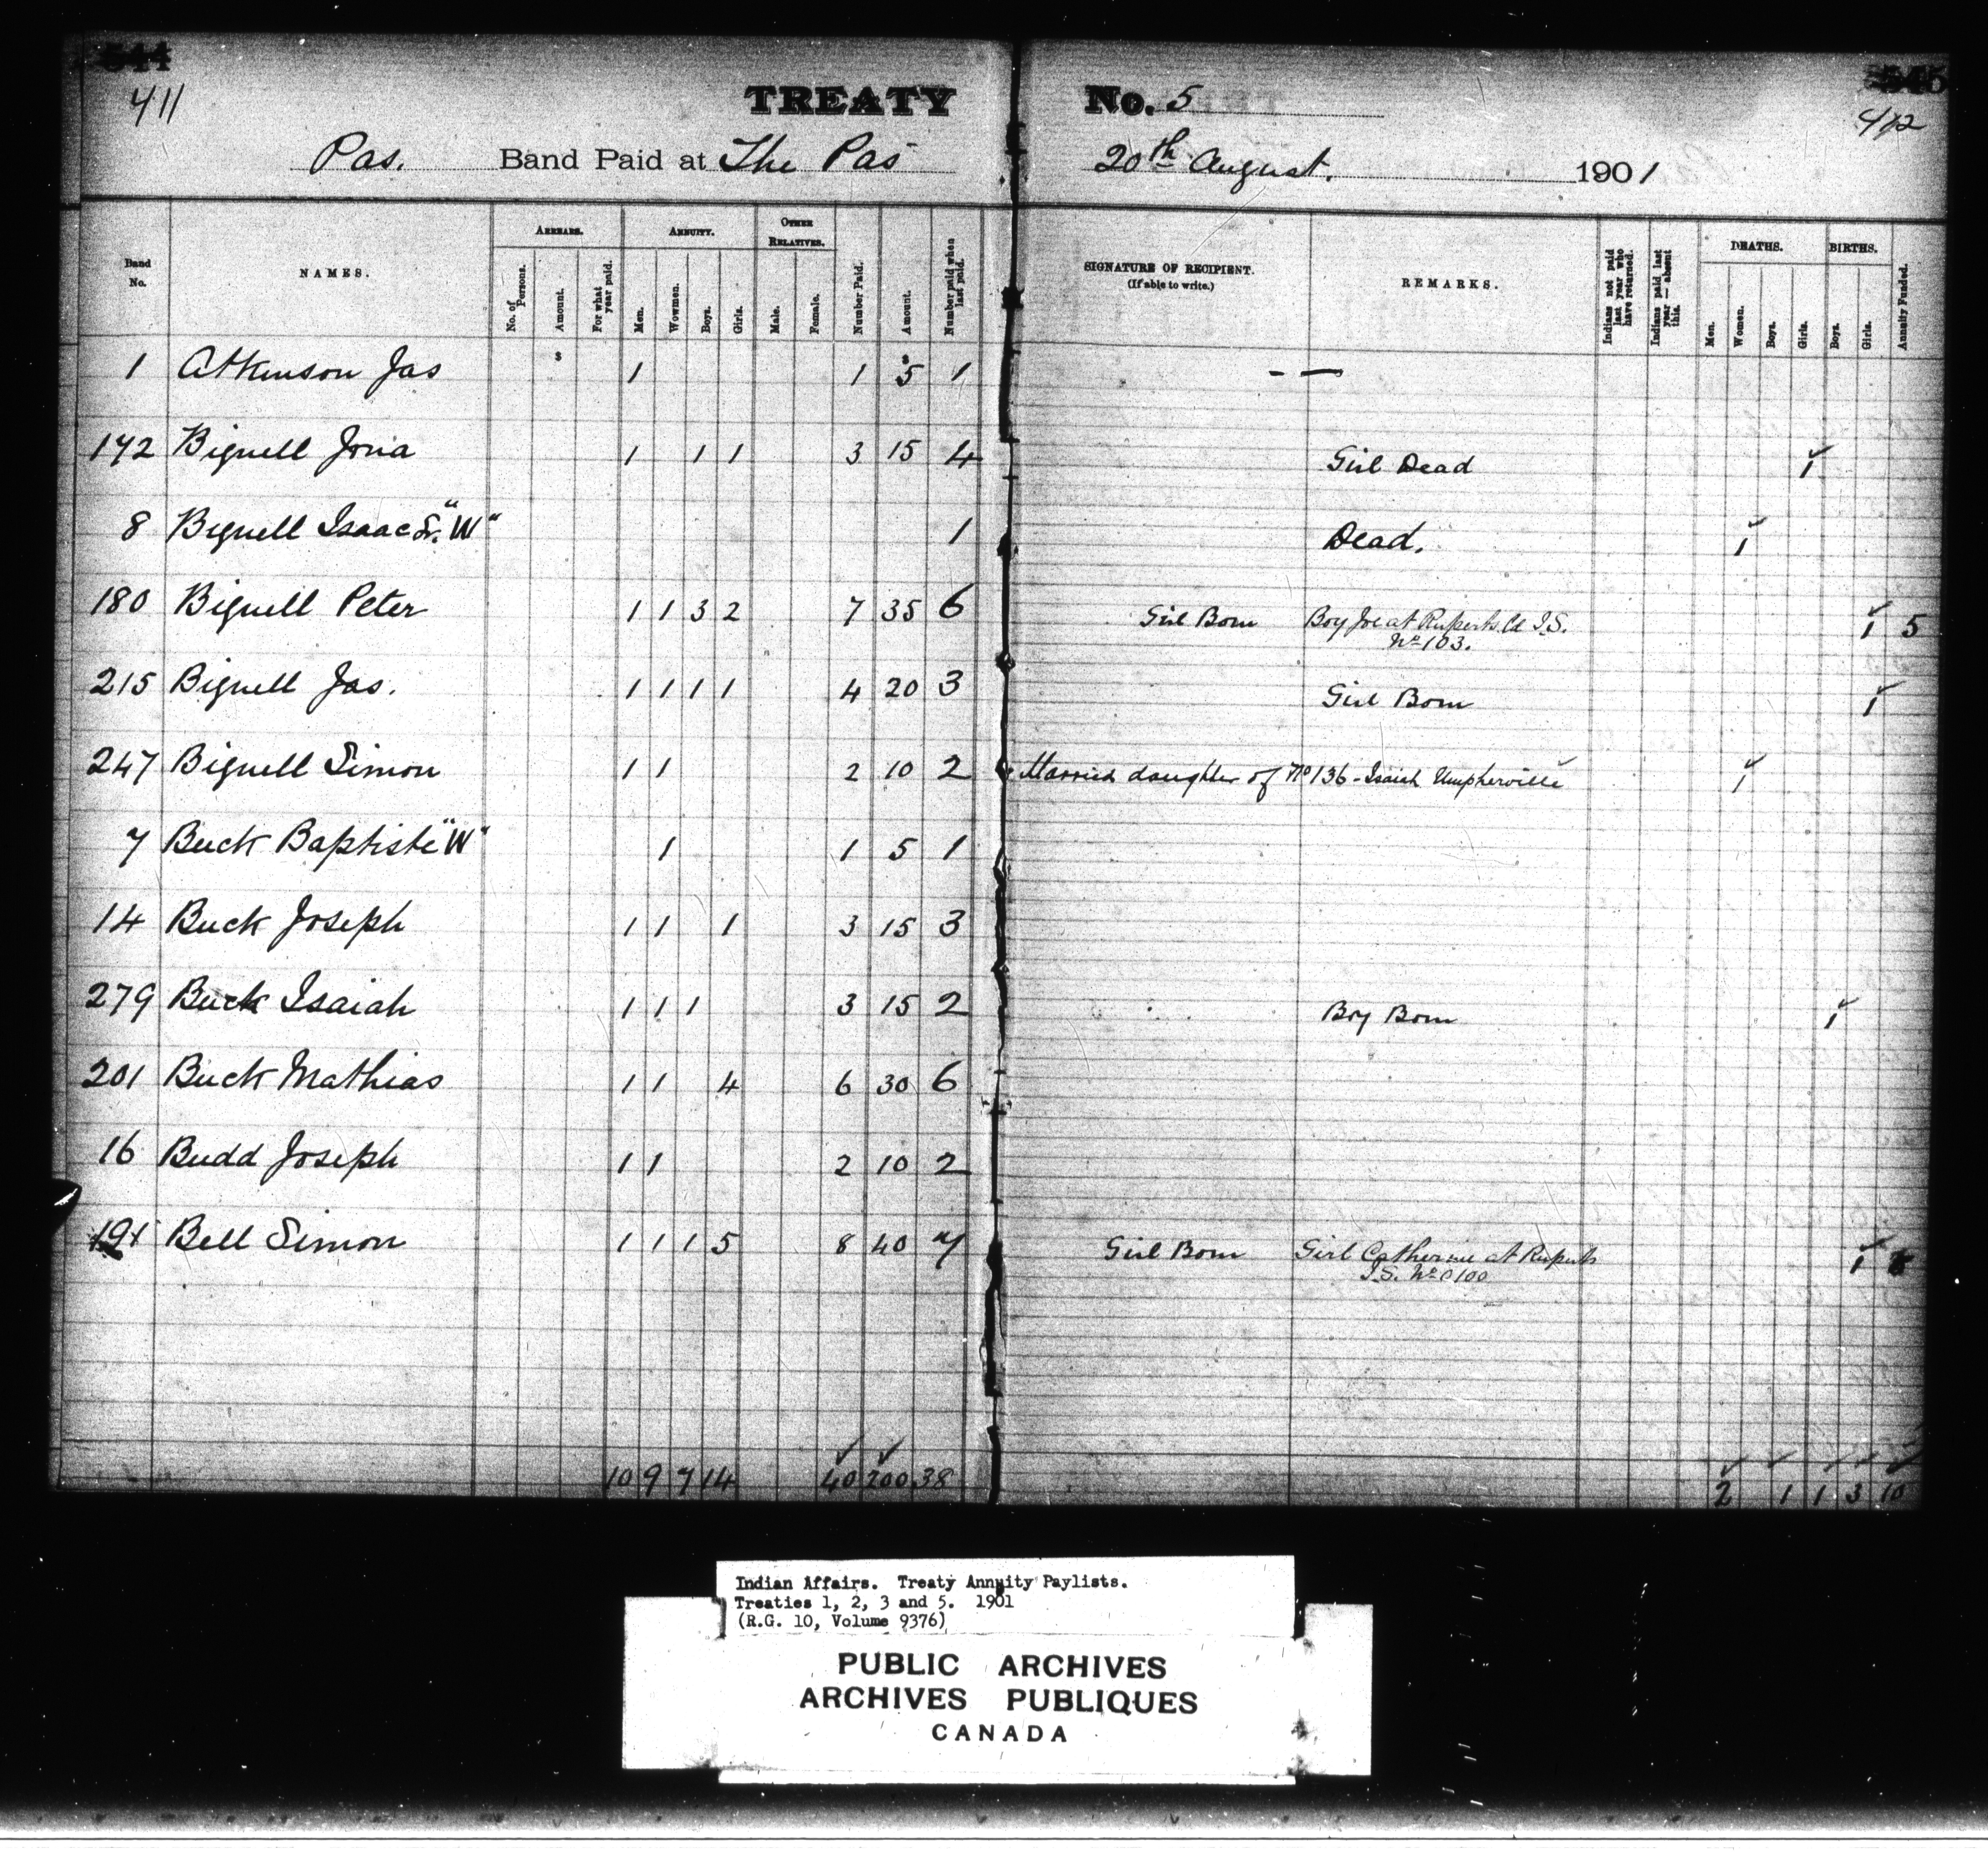 544 545
411 412
TREATY No. 5
Pas. Band Paid at The Pas 20th August. 1901
Band No. NAMES. ARREARS. No. of Persons. Amount. For what year paid. ANNUITY. Men. Wowmen. Boys. Girls. OTHER RELATIVES. Male. Female. Number Paid. Amount. Number paid when last paid. SIGNATURE OF RECIPIENT. (If able to write.) REMARKS. Indians not paid last year who have returned. Indians paid last year — absent this. DEATHS. Men. Women. Boys. Girls. BIRTHS. Boys. Girls. Annuity Funded.
1 Atkinson Jas $ 1 1 $5 1 - —
172 Bignell Jona 1 1 1 3 15 4 Girl Dead 1
8 Bignell Isaac Sr. "W" 1 Dead. 1
180 Bignell Peter 1 1 3 2 7 35 6 Girl Born Boy Joe at Ruperts Ld I.S. 1 5
No 103.
215 Bignell Jas. 1 1 1 1 4 20 3 Girl Born 1
247 Bignell Simon 1 1 2 10 2 Married daughter of No 136 - Isaiah Umpherville 1
7 Buck Baptiste "W" 1 1 5 1
14 Buck Joseph 1 1 1 3 15 3
279 Buck Isaiah 1 1 1 3 15 2 Boy Born 1
201 Buck Mathias 1 1 4 6 30 6
16 Budd Joseph 1 1 2 10 2
191 Bell Simon 1 1 1 5 8 40 7 Girl Born Girl Catherine at Ruperts 1
I.S. No 0100
10 9 7 14 40 200 38 2 1 1 3 10
Indian Affairs. Treaty Annuity Paylists.
Treaties 1, 2, 3 and 5. 1901
(R.G. 10, Volume 9376)
PUBLIC ARCHIVES
ARCHIVES PUBLIQUES
CANADA